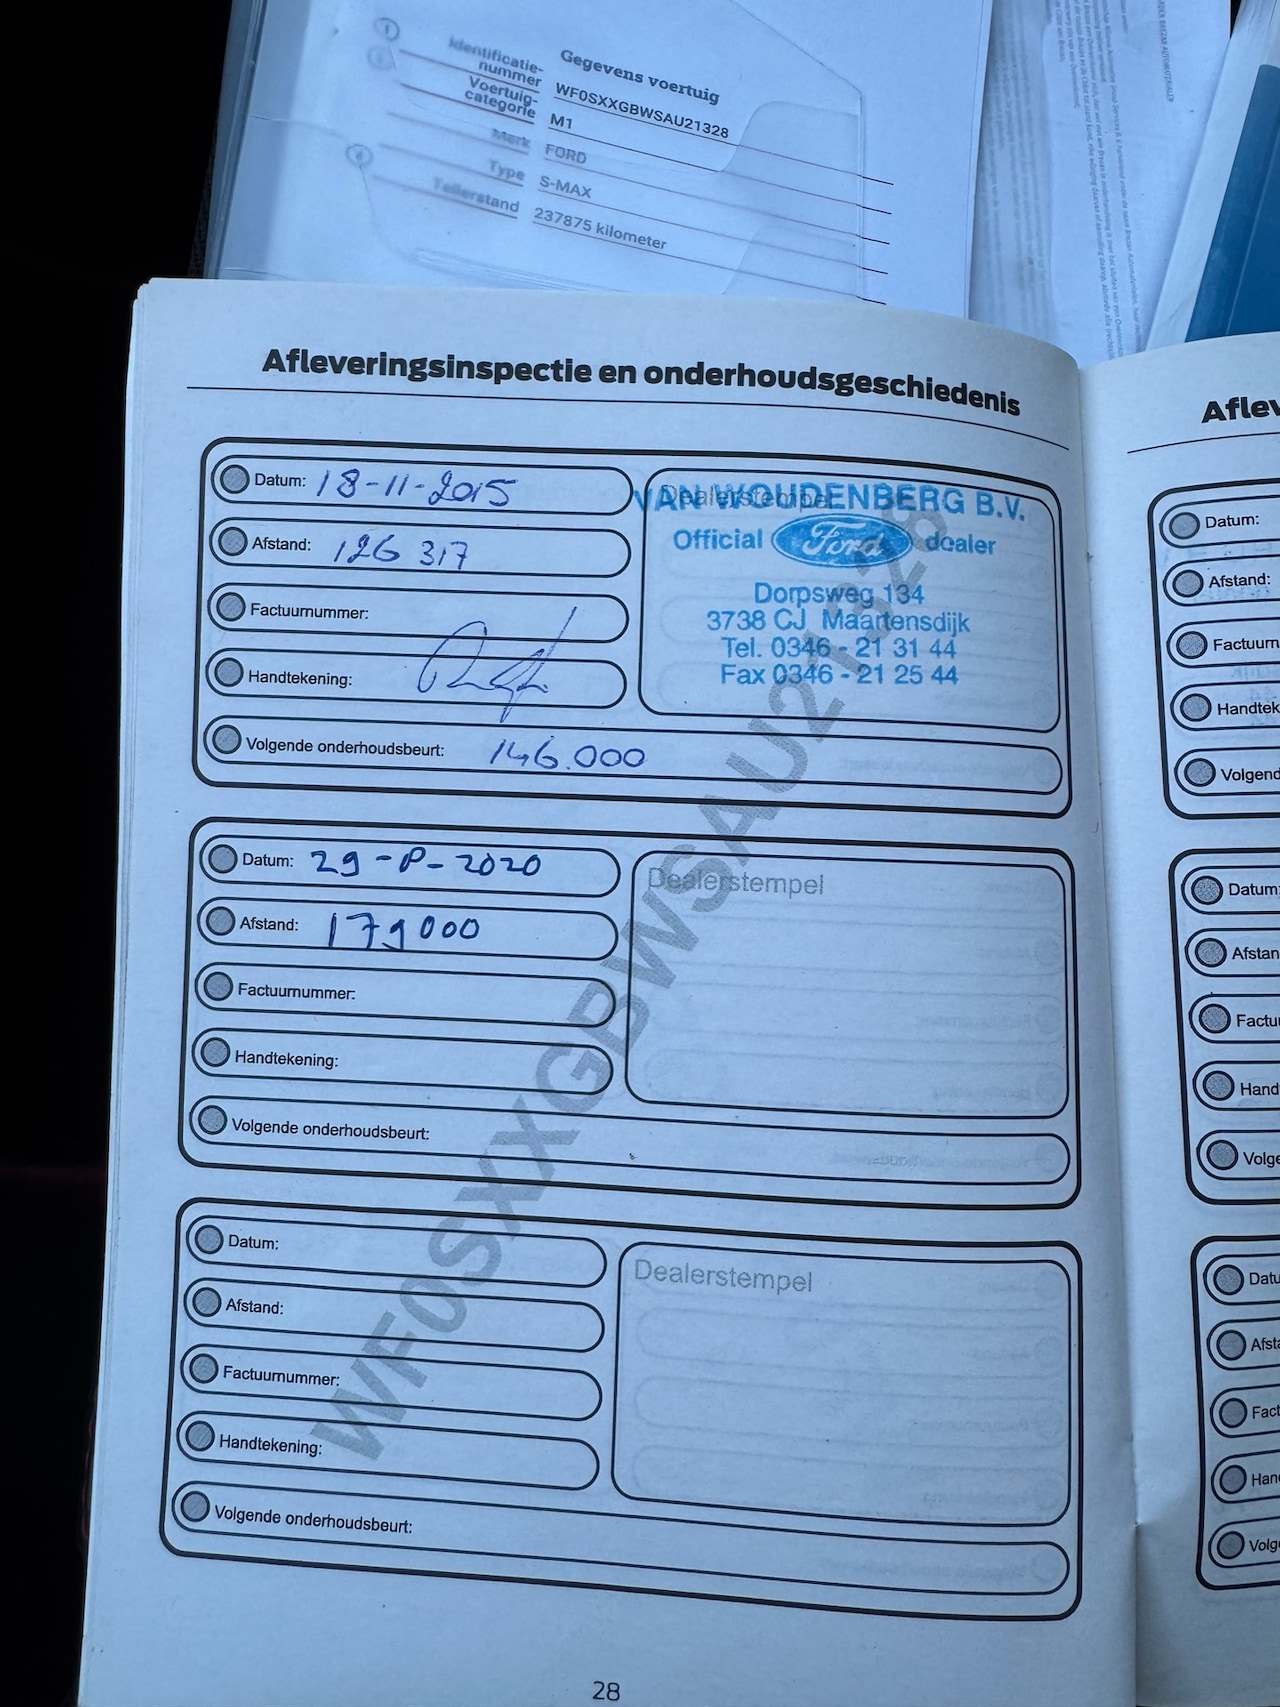 Gegevens voertuig
Identificatie-
nummer WF0SXXGBWSAU21328
Voertuig-
categorie M1
Merk FORD
Type S-MAX
Tellerstand 237875 kilometer
Afleveringsinspectie en onderhoudsgeschiedenis
Datum: 18-11-2015
Afstand: 126 317
Factuurnummer:
Handtekening:
Volgende onderhoudsbeurt: 146.000
Dealerstempel
VAN WOUDENBERG B.V.
Official Ford dealer
Dorpsweg 134
3738 CJ Maartensdijk
Tel. 0346 - 21 31 44
Fax 0346 - 21 25 44
Datum: 29-P-2020
Afstand: 179000
Factuurnummer:
Handtekening:
Volgende onderhoudsbeurt:
Dealerstempel
Datum:
Afstand:
Factuurnummer:
Handtekening:
Volgende onderhoudsbeurt:
Dealerstempel
WF0SXXGBWSAU21328
28
Aflev
Datum:
Afstand:
Factuurn
Handtek
Volgend
Datum:
Afstan
Factu
Hand
Volge
Datu
Afsta
Fact
Han
Volg